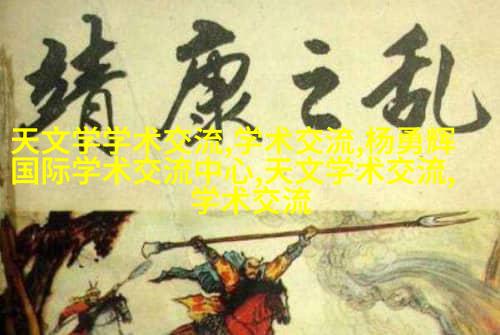 靖康之乱
天文学学术交流,学术交流,杨勇辉
国际学术交流中心,天文学术交流,
学术交流